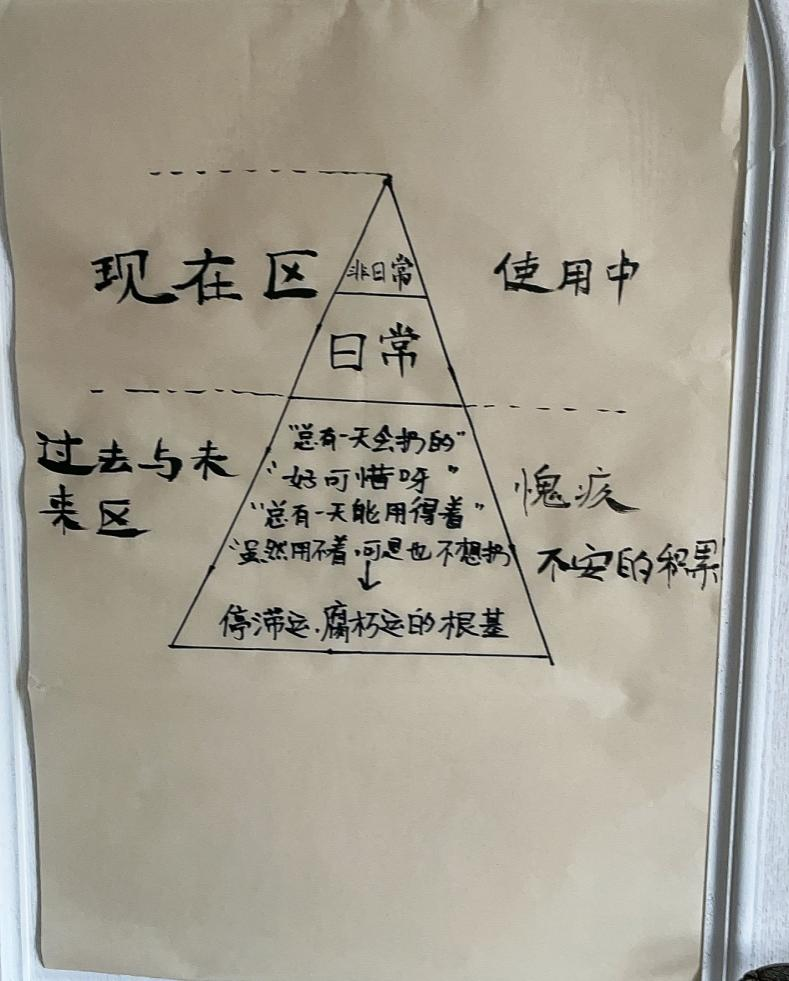 现在区
非日常
使用中
日常
过去与未
来区
"总有一天会扔的"
"好可惜呀"
"总有一天能用得着"
"虽然用不着,可是也不想扔
↓
停滞运.腐朽运的根基
愧疚
不安的积累